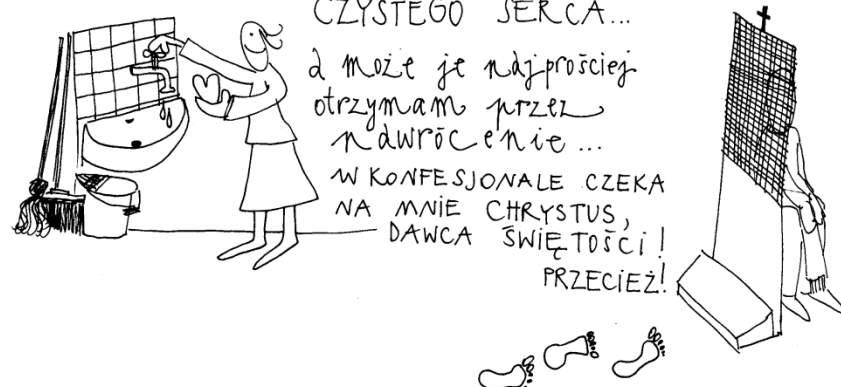 CZYSTEGO SERCA...
a może je najprościej
otrzymam przez
nawrócenie...
W KONFESJONALE CZEKA
NA MNIE CHRYSTUS,
DAWCA ŚWIĘTOŚCI!
PRZECIEŻ!